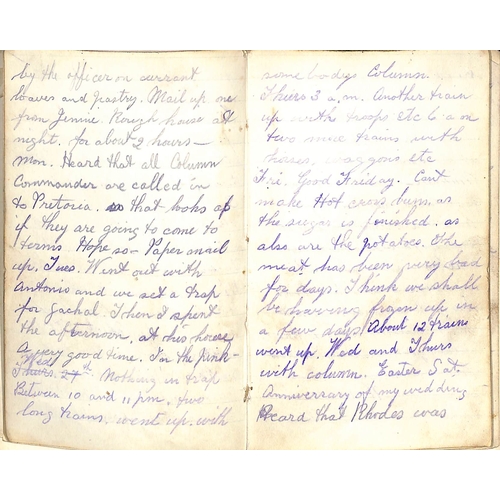 by the officer on currant
loaves and pastry. Mail up one
from Jennie Rough house at
night, for about 2 hours—
Mon. Heard that all Column
Commander are called in
to Pretoria. so that looks as
if they are going to come to
terms Hope so— Paper mail
up. Tues. Went out with
Antonio and we set a trap
for jackal. Then I spent
the afternoon, at his house
A very good time. For the
Wed
Thurs. 27th. Nothing in trap
Between 10 and 11 pm, two
long trains. went up. with
some bodys Column.
Thurs 3 a.m. Another train
up with troops Etc 6 a m
two more trains, with
horses, waggons etc
Fri. Good Friday. Cant
make Hot cross buns, as
the sugar is finished, as
also are the potatoes. The
meat has been very bad
for days. Think we shall
be having from up in
a few days. About 12 trains
went up. Wed and Thurs
with column. Easter Sat.
Anniversary of my wedding
Heard that Rhodes was